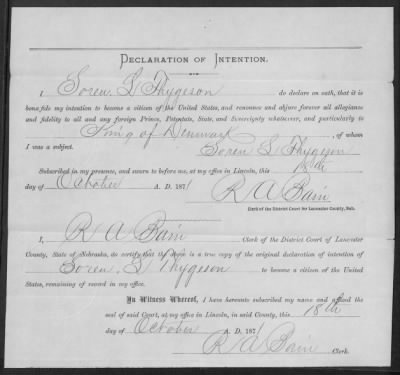 DECLARATION OF INTENTION.
I Soren L Thygeson do declare on oath, that it is
bona fide my intention to become a citizen of the United States, and renounce and abjure forever all allegiance
and fidelity to all and any foreign Prince, Potentate, State, and Sovereignty whatsoever, and particularly to
King of Denmark, of whom
I was a subject. Soren L Thygeson
Subscribed in my presence, and sworn to before me, at my office in Lincoln, this 18th
day of October A. D. 1871 R A Bain
Clerk of the District Court for Lancaster County, Neb.
I, R A Bain Clerk of the District Court of Lancaster
County, State of Nebraska, do certify that the above is a true copy of the original declaration of intention of
Soren L Thygeson to become a citizen of the United
States, remaining of record in my office.
In Witness Whereof, I have hereunto subscribed my name and affixed the
seal of said Court, at my office in Lincoln, in said County, this 18th
day of October A. D. 1871
R A Bain Clerk.